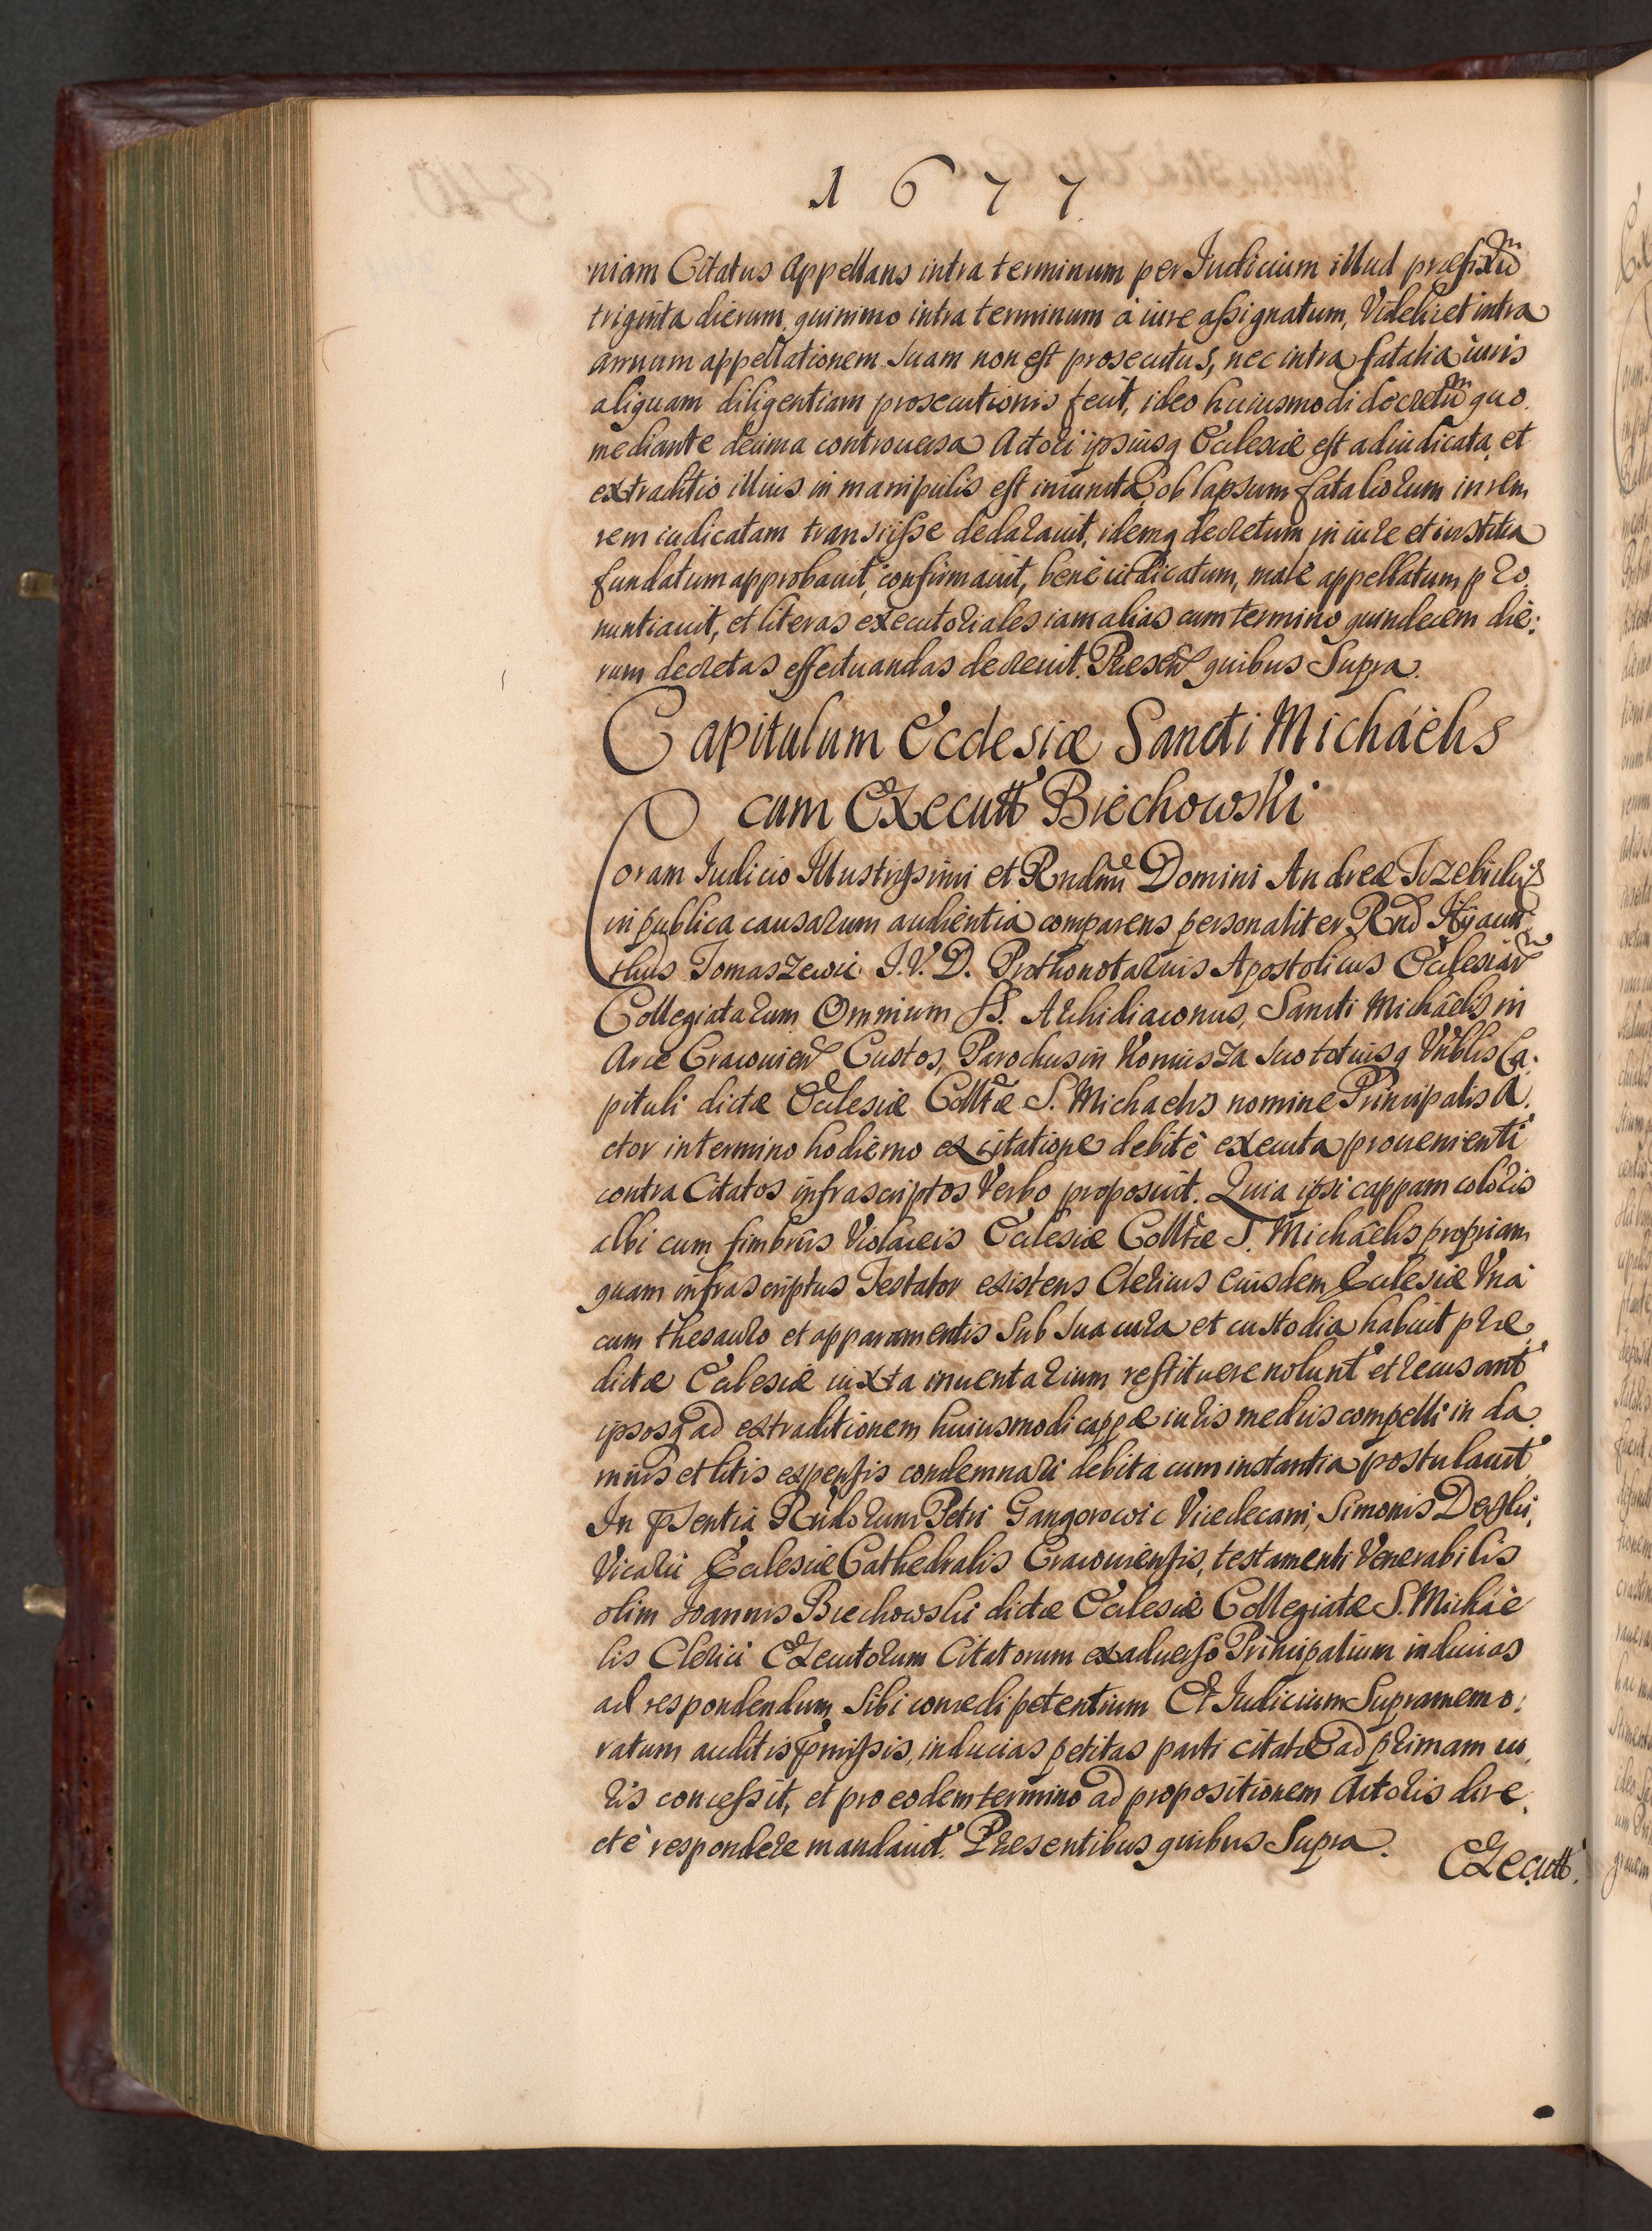 1677
niam Citatus Appellans intra terminum per Iudicium illud præfixũ
triginta dierum, quinimo intra terminum à iure aßignatum, Videlicet intra
annum appellationem suam non est prosecutus, nec intra fatalia iuris
aliquam diligentiam prosecutionis fecit, ideo huiusmodi decretũ quo
mediante decima controuersa Actori ipsiusq Ecclesiæ est adiudicata, et
extraditio illius in manipulis est iniuncta, ob lapsum fataliorum in rem
rem iudicatam transiiße declarauit, idemq decretum in iure et iustitia
fundatum approbauit, confirmauit, benè iudicatum, malè appellatum, pro
nuntiauit, et literas executoriales iam alias cum termino quindecem die:
rum decretas effectuandas decreuit. Præsen̄ quibus Supra.
Capitulum Ecclesiæ Sancti Michaëlis
cum Executt Biechowski
Coram Iudicio Illustrißimi et Rndmi Domini Andreæ Trzebicki
in publica causarum audientia comparens personaliter Rnd Hyacin:
thus Tomaszewic I.V.D. Prothonotarius Apostolicus Ecclesiar̃
Collegiatarum Omnium SS. Archidiaconus, Sancti Michaëlis in
Arce Cracouien̄ Custos, Parochus in Koniusza suo totiusq Vnblis Ca:
pituli dictæ Ecclesiæ Colltæ S. Michaelis nomine Principalis A:
ctor in termino hodierno ex citatione debitè executa prouenienti
contra Citatos infrascriptos Verbo proposuit. Quia ipsi cappam coloris
albi cum fimbriis Violaceis Ecclesiæ Colltæ S. Michaëlis propriam
quam infrascriptus Testator existens Clericus eiusdem Ecclesiæ Vnà
cum thesauro et apparamentis sub sua cura et custodia habuit præ
dictæ Ecclesiæ iuxta inuentarium restituere nolunt et recusant
ipsosq ad extraditionem huiusmodi cappæ iuris mediis compelli in da
mnis et litis expensis condemnari debita cum instantia postulauit
In pſentia Rndorum Petri Gangorowic Vicedecani, Simonis
Vicarii Ecclesiæ Cathedralis Cracouiensis, testamenti Venerabilis
olim Ioannis Biechowski dictæ Ecclesiæ Collegiatæ S. Michaë
lis Clerici Executorum Citatorum ex aduerso Principalium inducias
ad respondendum sibi concedi petentium Et Iudicium Supramemo:
ratum auditis p̄mißis, inducias petitas parti citatæ ad primam iu
ris conceßit, et pro eodem termino ad propositionem Actoris dire:
ctè respondere mandauit. Præsentibus quibus Supra.
Executt.